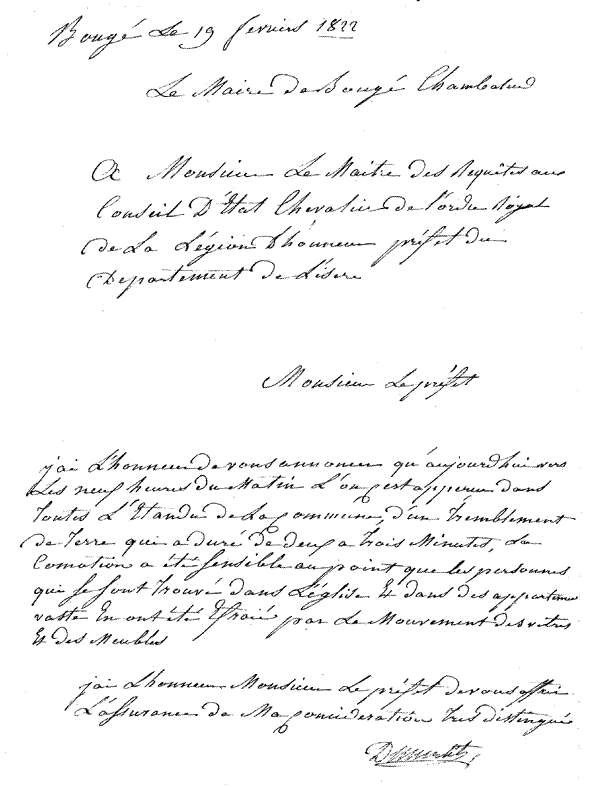 Bougé Le 19 fevriers 1822
Le Maire de Bougé Chambalud
A Monsieur Le Maitre des Requêtes au
Conseil D'Etat Chevalier de l'ordre Royal
de La Légion D'honneur préfet du
Departement de L'isere
Monsieur Le préfet
j'ai L'honneur de vous annoncer qu'aujourd'hui vers
Les neuf heures du Matin L'on s'est apperçu dans
toutes L'Etandu de La Commune, d'un tremblement
de terre qui a duré de deux a trois Minutes, La
Comotion a été sensible au point que les personnes
qui se sont trouvé dans L'église Et dans des apparteme
vaste En ont été Efraié par Le Mouvement des vitres
Et des Meubles
j'ai L'honneur Monsieur Le préfet de vous offrir
L'assurance de Ma Consideration très distinguée